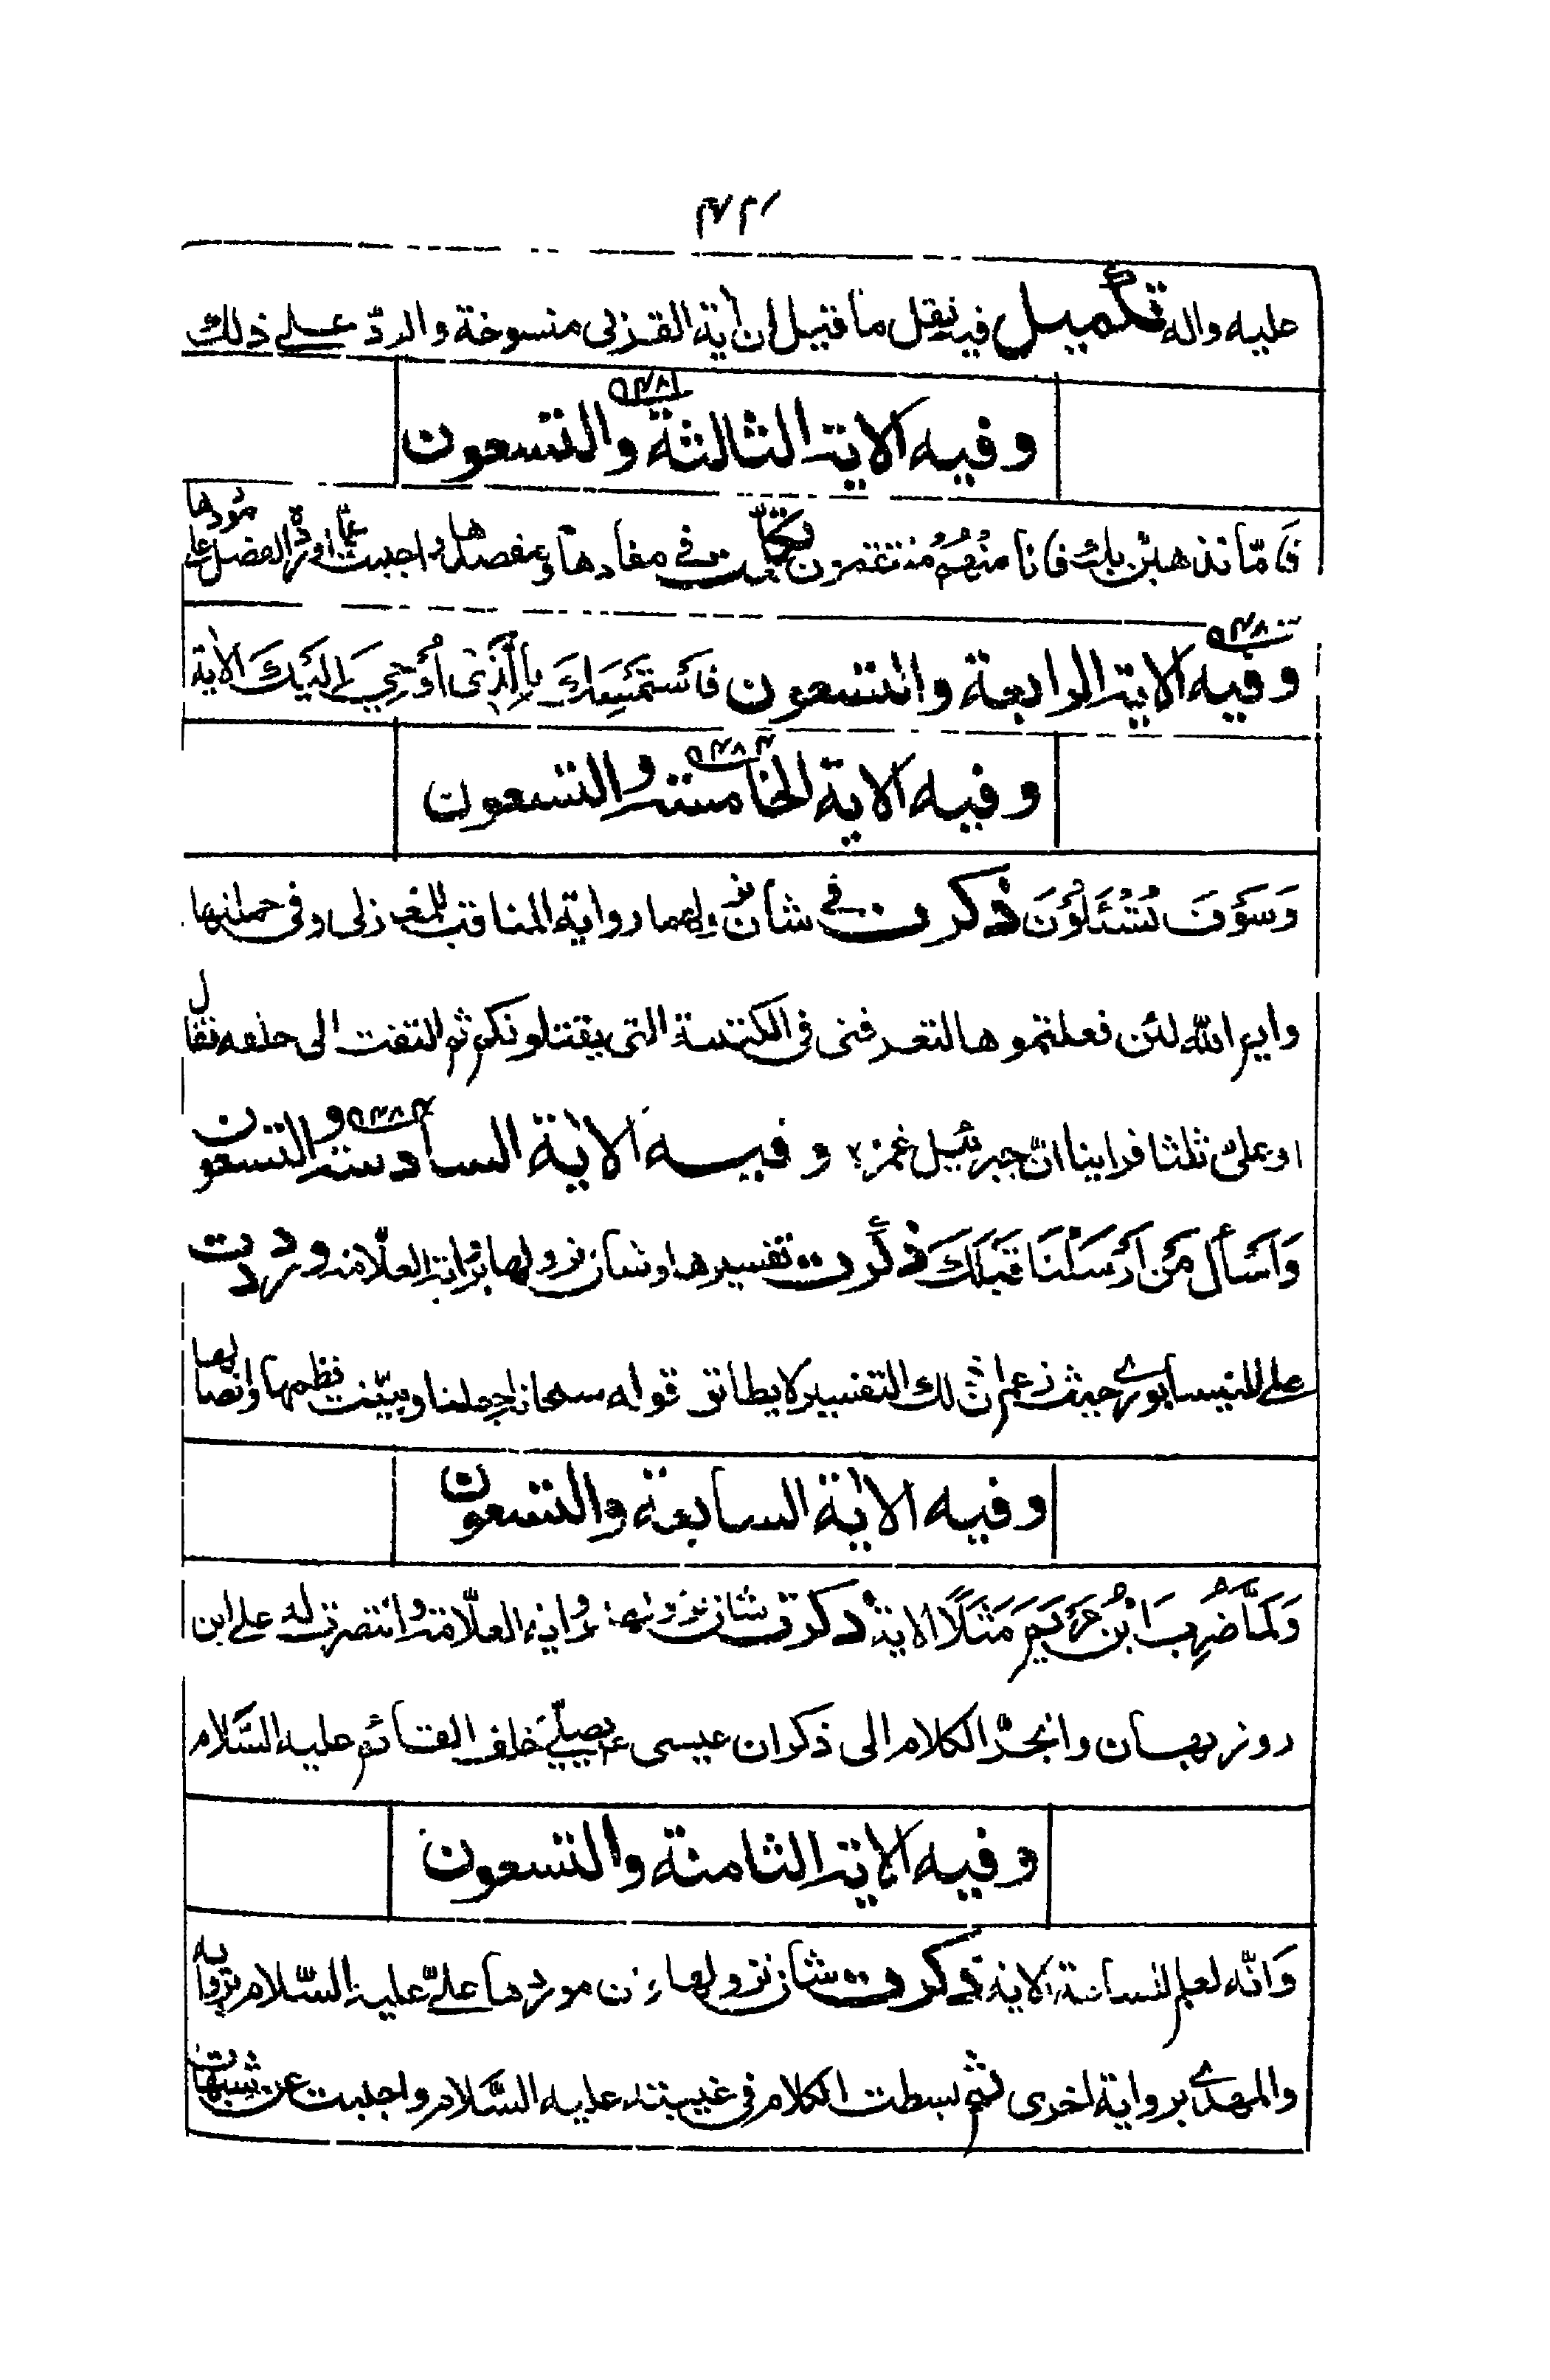 عليه واله تكميل فيه نقل ما قيل ان آية القربى منسوخة والردّ على ذلك
وفيه الاية الثالثة والتسعون
فامّا نذهبنّ بك فانا منهم منتقمون تكلّمت في مفادها ومفصلها واجبت عمّا اورده الفضل على موردها
وفيه الاية الرابعة والتسعون فَاسْتَمْسِكْ بِالَّذِي أُوحِيَ إِلَيْكَ الاية
وفيه الاية الخامسة والتسعون
وَسَوْفَ تُسْئَلُونَ ذكرت في شأن نزولهما رواية المناقب للمغازلى وفى جملتها
وايم الله لئن فعلتموها لتعرفنى فى الكتيبة التى يقتلونكم ثم التفت الى خلفه فقال
او على ثلثا فراينا انّ جبرئيل غمزه وفيه الاية السادسة والتسعون
وَاسْأَلْ مَنْ أَرْسَلْنَا قَبْلَكَ ذكرت تفسيرها وشان نزولها برواية العلّامة ورددت
على النيسابوري حيث زعم ان ذلك التفسير لا يطابق قوله سبحانه اجعلنا وبيّنت نظمها واتصالها
وفيه الاية السابعة والتسعون
وَلَمَّا ضُرِبَ ابْنُ مَرْيَمَ مَثَلًا الاية ذكرت شان نزولها برواية العلّامة وانتصرت له على ابن
روزبهان وانجرّ الكلام الى ذكر ان عيسى ع يصلّي خلف القائم عليه السَّلام
وفيه الاية الثامنة والتسعون
وَانّه لعلم للساعة الاية ذكرت شان نزولها وان موردها علىّ عليه السّلام برواية
والمهدي برواية اخرى ثم بسطت الكلام فى غيبته عليه السَّلام واجبت عن شبهات